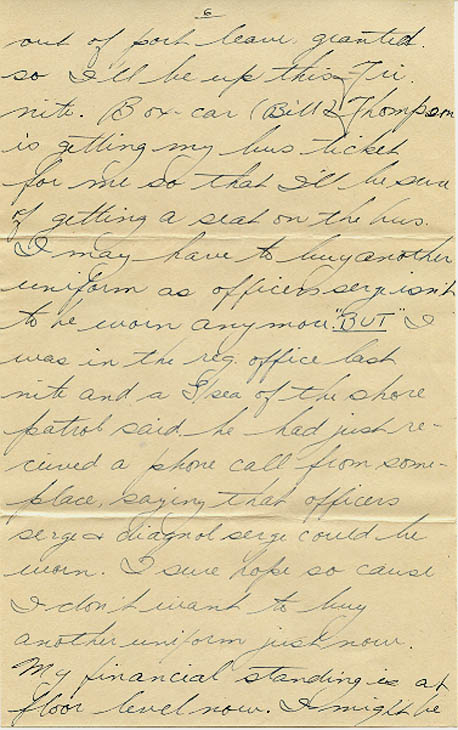 6
out of port leave granted.
so I'll be up this Fri.
nite. Box-car (Bill) Thompson
is getting my bus ticket
for me so that I'll be sure
of getting a seat on the bus.
I may have to buy another
uniform as officers serge isn't
to be worn anymore. "BUT" I
was in the reg. office last
nite and a of the shore
patrol said he had just re-
cieved a phone call from some-
place, saying that officers
serge & diagnol serge could be
worn. I sure hope so cause
I don't want to buy
another uniform just now.
My financial standing is at
floor level now. I might be